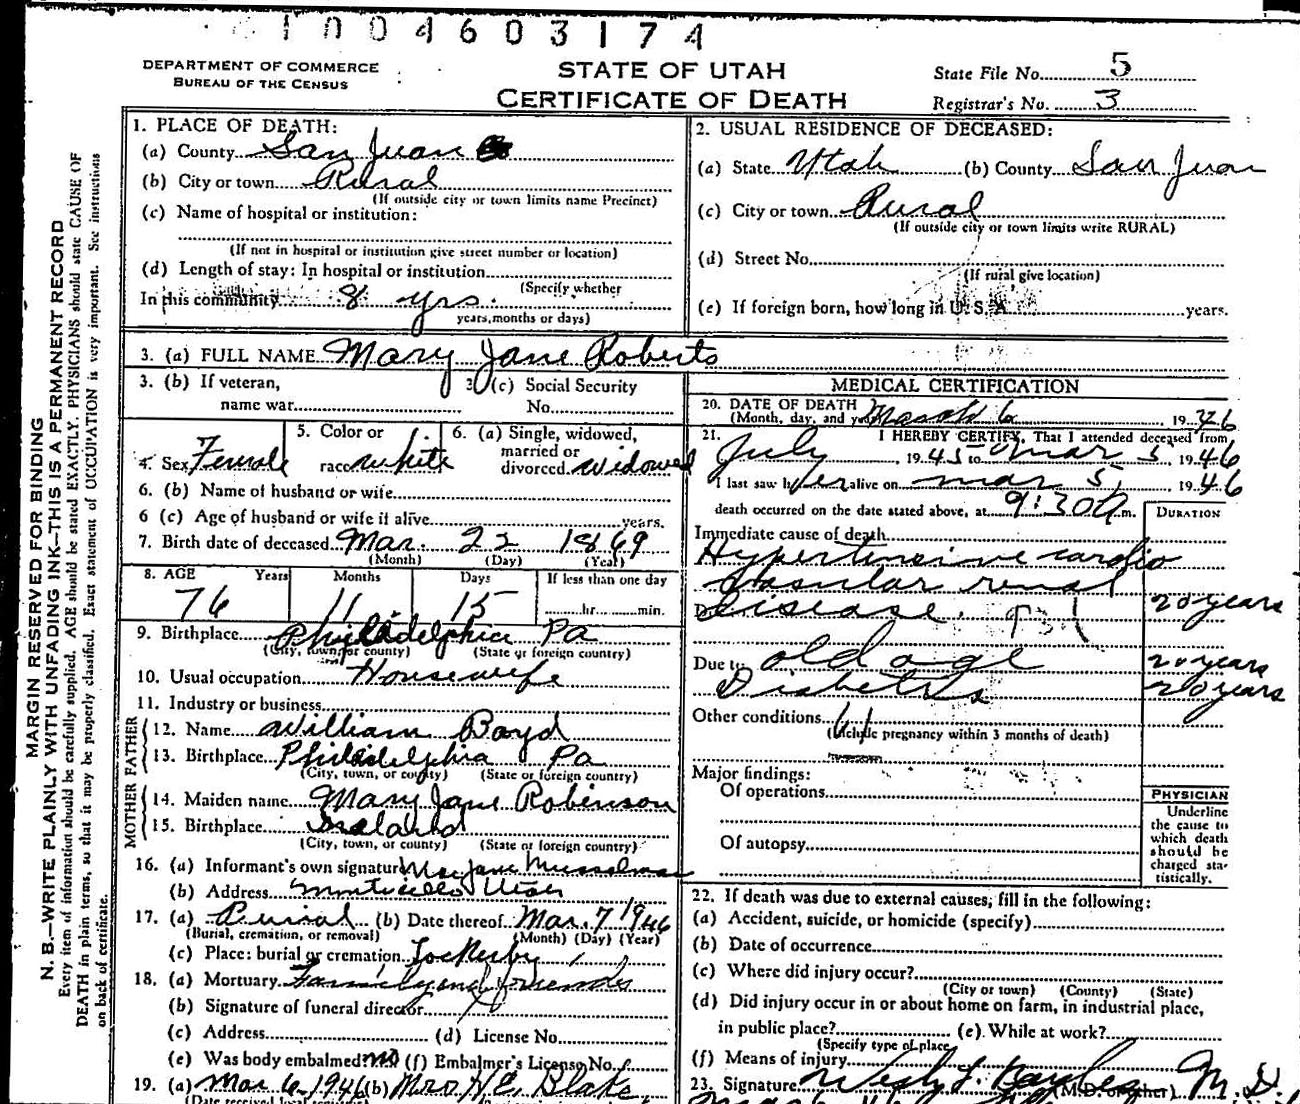 1004603174
DEPARTMENT OF COMMERCE
BUREAU OF THE CENSUS
STATE OF UTAH
CERTIFICATE OF DEATH
State File No. 5
Registrar's No. 3
MARGIN RESERVED FOR BINDING
N. B.—WRITE PLAINLY WITH UNFADING INK—THIS IS A PERMANENT RECORD
Every item of information should be carefully supplied. AGE should be stated EXACTLY. PHYSICIANS should state CAUSE OF
DEATH in plain terms, so that it may be properly classified. Exact statement of OCCUPATION is very important. See instructions
on back of certificate.
1. PLACE OF DEATH:
(a) County San Juan
(b) City or town Rural
(If outside city or town limits name Precinct)
(c) Name of hospital or institution:
(If not in hospital or institution give street number or location)
(d) Length of stay: In hospital or institution
(Specify whether
In this community 8 yrs.
years, months or days)
2. USUAL RESIDENCE OF DECEASED:
(a) State Utah (b) County San Juan
(c) City or town Rural
(If outside city or town limits write RURAL)
(d) Street No.
(If rural give location)
(e) If foreign born, how long in U. S. A. years.
3. (a) FULL NAME Mary Jane Roberts
3. (b) If veteran,
name war
3 (c) Social Security
No.
4. Sex Female
5. Color or
race white
6. (a) Single, widowed,
married or
divorced. widowed
6. (b) Name of husband or wife
6 (c) Age of husband or wife if alive years.
7. Birth date of deceased Mar. 22 1869
(Month) (Day) (Year)
8. AGE Years Months Days If less than one day
76 11 15 hr. min.
9. Birthplace Philadelphia Pa
(City, town, or county) (State or foreign country)
10. Usual occupation Housewife
11. Industry or business
FATHER
12. Name William Boyd
13. Birthplace Philadelphia Pa
(City, town, or county) (State or foreign country)
MOTHER
14. Maiden name Mary Jane Robinson
15. Birthplace Ireland
(City, town, or county) (State or foreign country)
16. (a) Informant's own signature Jane Musselman
(b) Address Monticello Utah
17. (a) Burial (b) Date thereof Mar. 7 1946
(Burial, cremation, or removal) (Month) (Day) (Year)
(c) Place: burial or cremation Lockerby
18. (a) Mortuary Family and friends
(b) Signature of funeral director
(c) Address (d) License No.
(e) Was body embalmed? no (f) Embalmer's License No.
19. (a) Mar 6, 1946 (b) Mrs
MEDICAL CERTIFICATION
20. DATE OF DEATH March 6 1946
(Month, day, and year)
21. I HEREBY CERTIFY, That I attended deceased from
July 1945 to Mar 5, 1946
I last saw her alive on Mar 5, 1946
death occurred on the date stated above, at 9:30 a m.
DURATION
Immediate cause of death
Hypertensive cardio
vascular renal
disease. 931 20 years
Due to old age 20 years
Diabetes 20 years
Other conditions 61
(Include pregnancy within 3 months of death)
Major findings:
Of operations
Of autopsy
PHYSICIAN
Underline
the cause to
which death
should be
charged sta-
tistically.
22. If death was due to external causes, fill in the following:
(a) Accident, suicide, or homicide (specify)
(b) Date of occurrence
(c) Where did injury occur?
(City or town) (County) (State)
(d) Did injury occur in or about home on farm, in industrial place,
in public place? (e) While at work?
(Specify type of place
(f) Means of injury
23. Signature (M.D. or other) M. D.